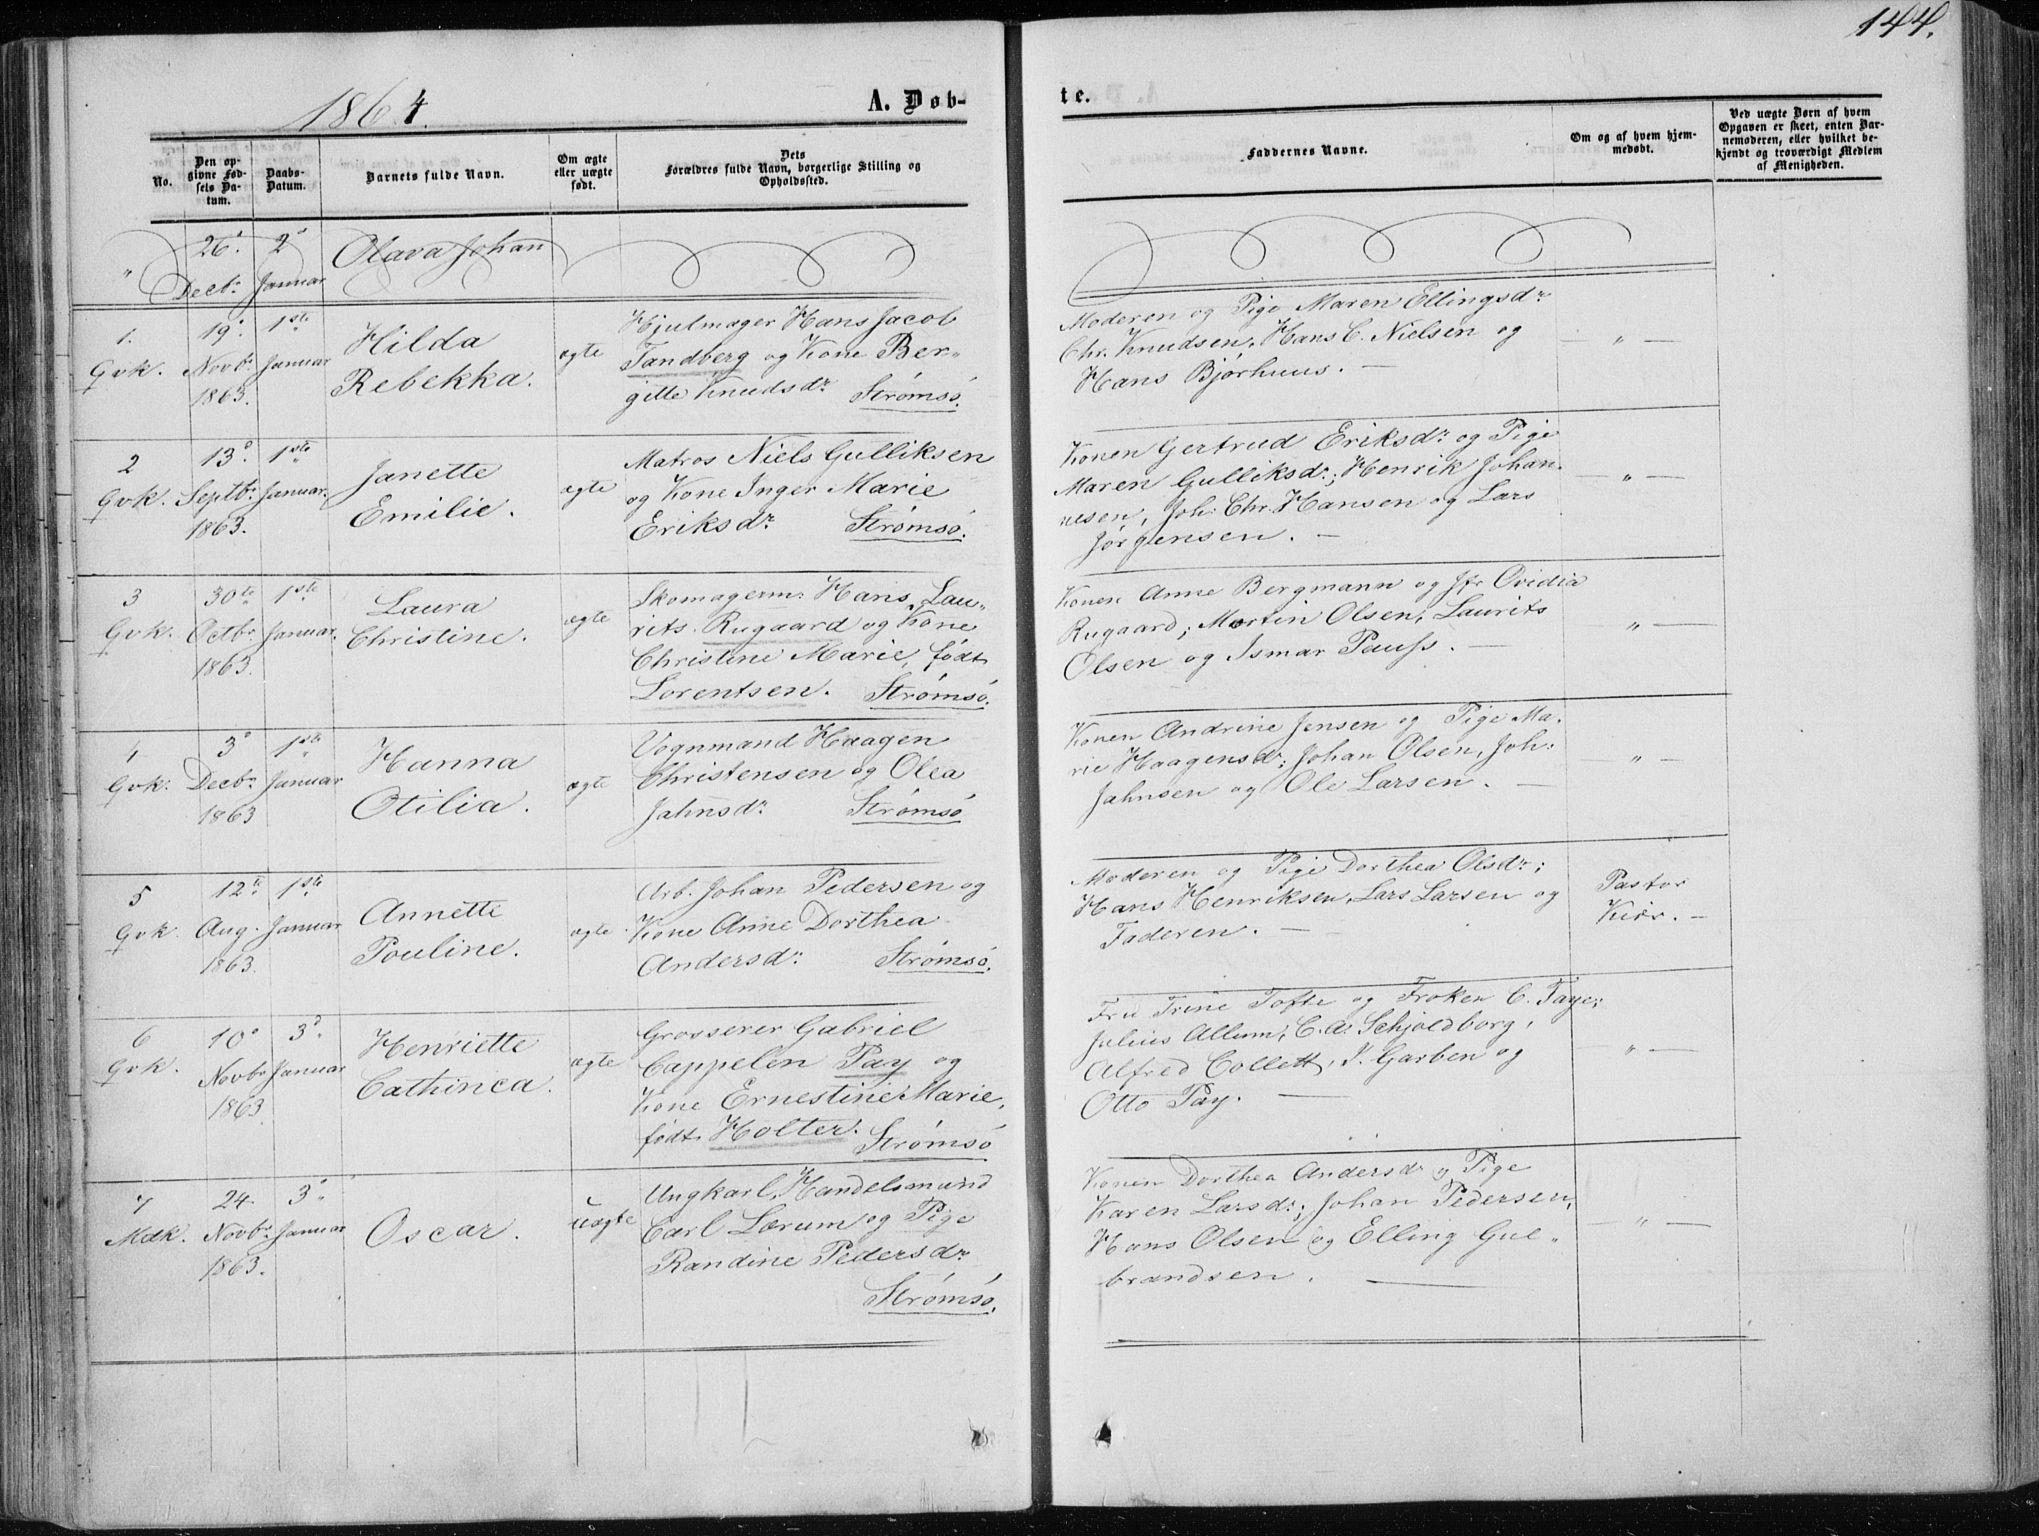 144.
1864.
A. Døb-
te.
No.
Den op-
givne Fød-
sels Da-
tum.
Daabs-
Datum.
Barnets fulde Navn.
Om ægte
eller uægte
født.
Dets
Forældres fulde Navn, borgerlige Stilling og
Opholdssted.
Faddernes Navne.
Om og af hvem hjem-
medøbt.
Ved uægte Børn af hvem
Opgaven er skeet, enten Bar-
nemoderen, eller hvilket be-
kjendt og troværdigt Medlem
af Menigheden.
"
26.
Decbr.
2
Januar
Olava Johan
1.
Qvk.
19.
Novbr.
1863.
1ste
Januar
Hilda
Rebekka.
ægte
Hjulmager Hans Jacob
Tandberg og Kone Ber-
gitte Knudsdr. Strømsø.
Moderen og Pige Maren Ellingsdr.
Chr. Knudsen, Hans C. Nielsen og
Hans Bjørhuus. —
— " —
2
Qvk.
13.
Septbr.
1863.
1ste
Januar.
Janette
Emilie.
ægte
Matros Niels Gulliksen
og Kone Inger Marie
Eriksdr. Strømsø.
Konen Gertrud Eriksdr. og Pige
Maren Gulliksdr.; Henrik Johan-
nesen, Joh. Chr. Hansen og Lars
Jörgensen. —
— " —
3
Qvk.
30te
Octbr.
1863.
1ste
Januar.
Laura
Christine.
ægte
Skomagerm. Hans Lau-
rits Rugaard og Kone
Christine Marie, født
Lorentsen. Strømsø.
Konen Anne Bergmann og Jfr Ovidia
Rugaard; Martin Olsen, Laurits
Olsen og Ismar Pauss. —
— " —
4
Qvk.
3
Decbr.
1863
1ste
Januar
Hanna
Otilia.
ægte
Vognmand Haagen
Christensen og Olea
Jahnsdr. Strømsø
Konen Andrine Jensen og Pige Ma-
rie Haagensdr.; Johan Olsen, Joh:
Jahnsen og Ole Larsen. —
— " —
5
Qvk.
12te
Aug.
1863.
1ste
Januar
Annette
Pouline.
ægte
Arb. Johan Pedersen og
Kone Anne Dorthea
Andersdr. Strømsø.
Moderen og Pige Dorthea Olsdr.;
Hans Henriksen, Lars Larsen og
Faderen. —
Pastor
Kiær. —
6
Qvk.
10
Novbr.
1863
3
Januar
Henriette
Cathinca.
ægte
Grosserer Gabriel
Cappelen Pay og
Kone Ernestine Marie,
født Holter. Strømsø
Fru Trine Tofte og Frøken C. Faye;
Julius Allum, C. A. Schjoldborg,
Alfred Collett, J. Garben og
Otto Pay. —
— " —
7
Mdk.
24.
Novbr.
1863.
3
Januar
Oscar.
uægte
Ungkarl, Handelsmand
Carl Lærum og Pige
Randine Pedersdr.
Strømsø.
Konen Dorthea Andersdr. og Pige
Karen Larsdr.; Johan Pedersen,
Hans Olsen og Elling Gul-
brandsen. —
— " —